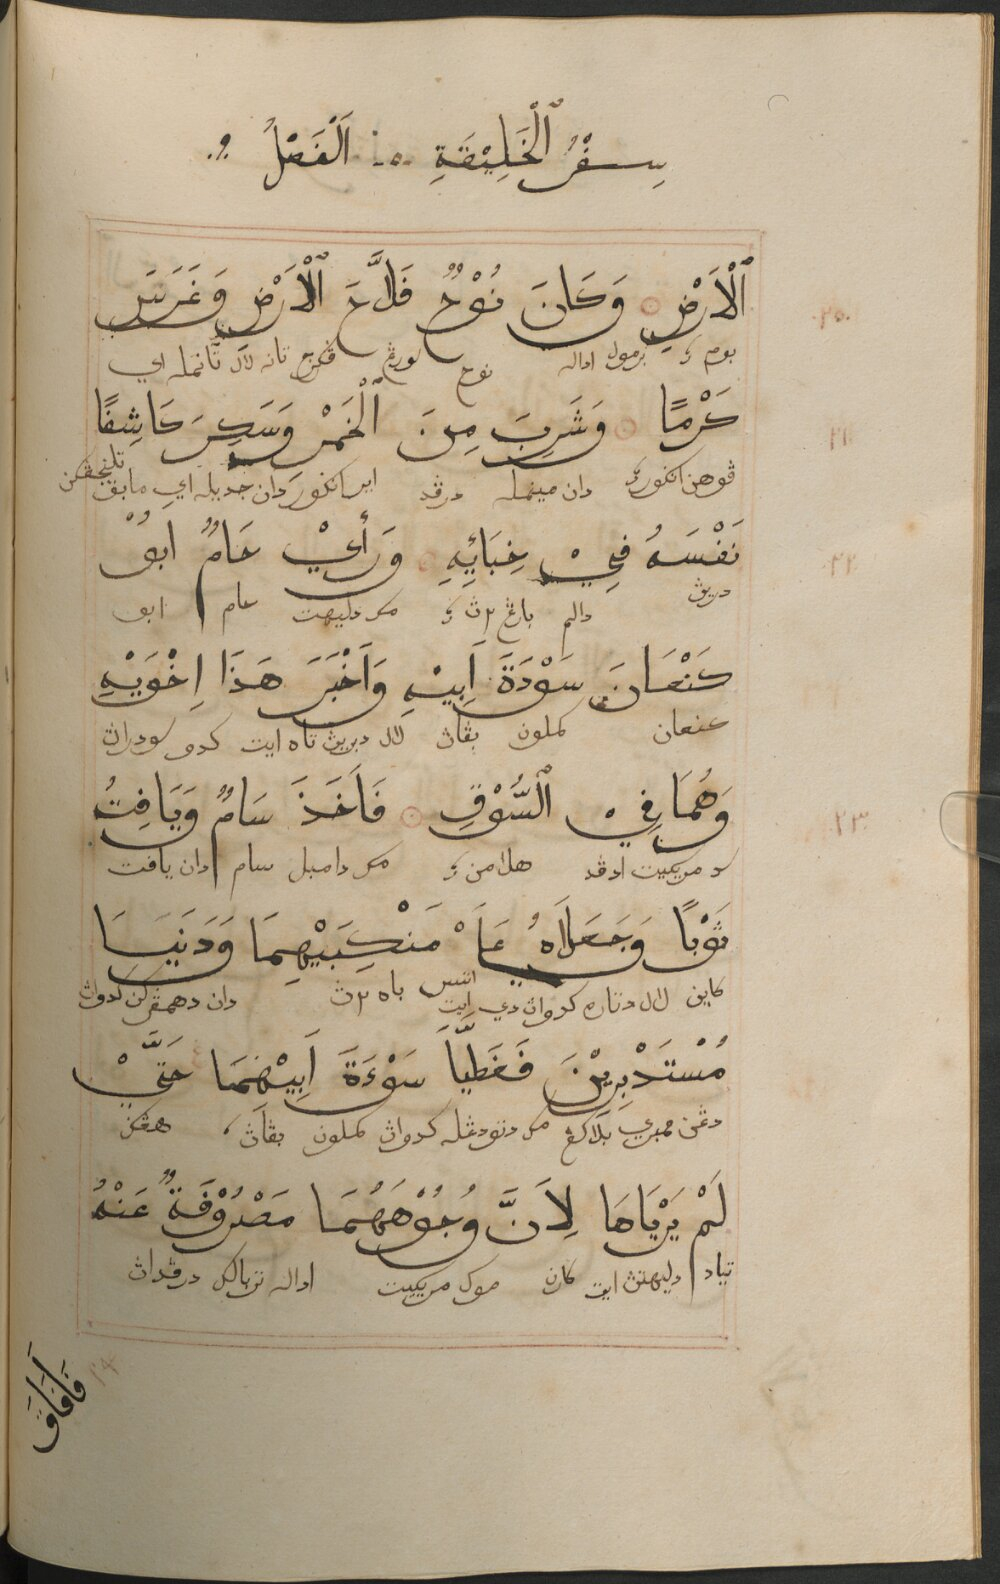 سِفْرُ ٱلْخَلِيْقَةِ ۰۰ اَلْفَصْلُ ۹
ٱلْاَرْضِ وَكَانَ نُوْحٌ فَلَّاحَ ٱلْاَرْضِ وَغَرَسَ
بوم برمول اداله نوح اورڠ تانه لال تانمله اي
كَرْمًا وَشَرِبَ مِنَ ٱلْخَمْرِ وَسَكِرَ كَاشِفًا
ڤوهن اڠكور دان مينمله درڤد اير اڠكور دان جديله اي مابق
نَفْسَهُ فِيْ خِبَائِهِ وَرَأَيْ حَامٌ ابُوْ
ديريڽ دالم باڠ٢ڽ مك دليهت حام ابو
كَنْعَانَ سَوْءَةَ اَبِيْهِ وَاَخْبَرَ هَذَا اِخْوَيْهِ
كنعان كملون بڤاڽ لال دبريڽ تاه ايت كدو سودراڽ
وَهُمَا فِيْ ٱلسُّوْقِ فَاَخَذَ سَامٌ وَيَافِتُ
د مريكيت ادڤد هلامن مك دامبل سام دان يافت
ثَوْبًا وَجَعَلَاهُ عَلَيْ مَنْكِبَيْهِمَا وَدَنَيَا
كاين لال دتاره كدواڽ دي اتس باه٢ڽ ايت دان دهمڤركن كدواڽ
مُسْتَدْبِرِيْنَ فَغَطَّيَا سَوْءَةَ اَبِيْهِمَا حَتَّيْ
دڠن ممبري بلاكڠ مك دتودڠله كدواڽ كملون بڤاڽ هڠڬ
لَمْ يَرْيَاهَا لِاَنَّ وُجُوْهَهُمَا مَصْرُوْفَةٌ عَنْهُ
تياد دليهتڽ ايت كارن موك مريكيت اداله ترباليك درڤداڽ
فَاَفَاقَ
۲۰
۲۱
۲۲
۲۳
۲۴